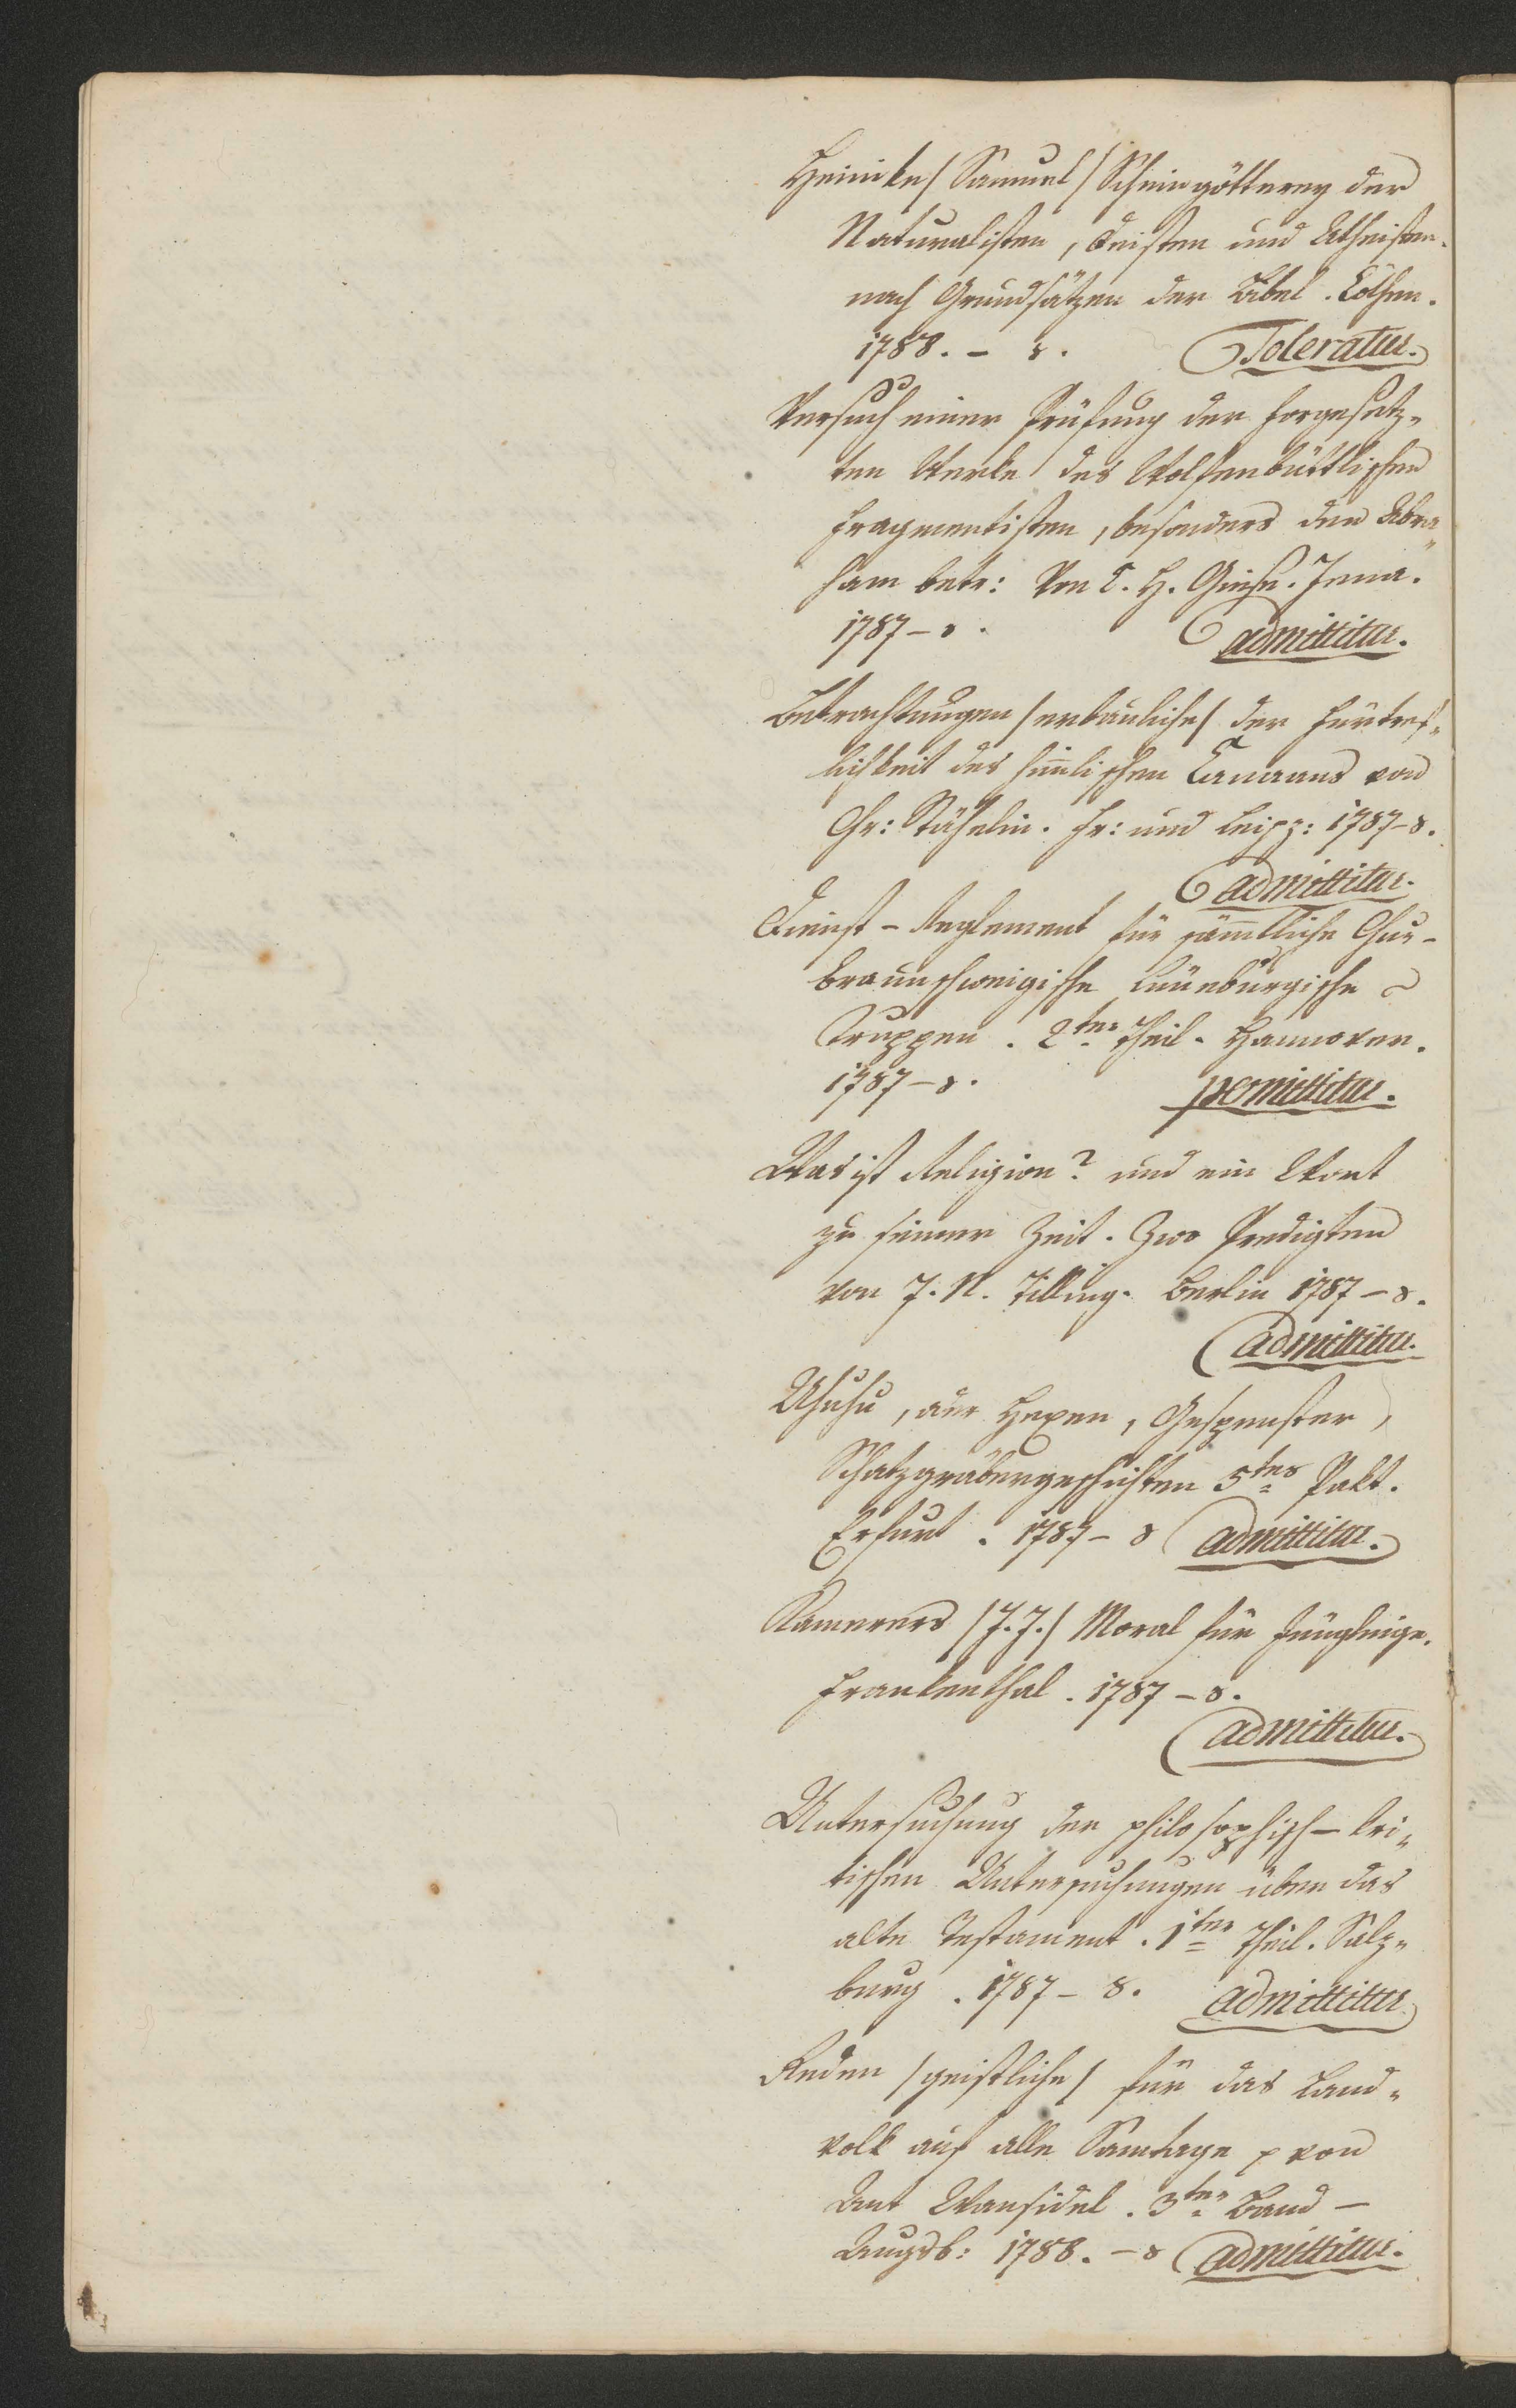 Heinike /Samuel/ Scheingötterey der
Naturalisten, Deisten und Atheisten
nach Grundsätzen der Bibel. Cöthen.
1788. – 8. Toleratur.
Versuch einer Prüfung der forgesetz„
ten Werke des Wolfenbüttlischen
Fragmentisten, besonders den Abra„
ham betr: Von L. H. Giese. Jena.
1787 – 8. admittitur.
Betrachtungen /erbauliche/ der Fürtref„
lichkeit des himlischen Emanns von
Chr: Stähelin. Fr: und Leipz: 1787–8.
admittitur.
Dienst-Reglement für sämtliche Chur-
braunschweigische Lüneburgische
Truppen. 2ter Theil. Hannover.
1787 – 8. permittitur.
Was ist Religion? und ein Wort
zu seiner Zeit. Zwo Predigten
von J. N. Tilling. Berlin 1787 – 8.
admittitur.
Uhuhu, aur Hexen, Gespenster,
Schatzgräbergeschichten 5tes Pakt.
Erfurt. 1787 – 8 admittitur.
Kamerers /J. J./ Moral für Jünglinge.
Frankenthal. 1787 – 8.
admittitur.
Untersuchung der philosophisch-kri„
tischen Untersuchungen über das
alte Testament. 1ter Theil. Salz„
burg. 1787 – 8. admittitur
Reden /geistliche/ für das Land„
volk auf alle Samtage von
Ant Wansidel. 3ter Band –
Augsb: 1788. – 8 admittitur.